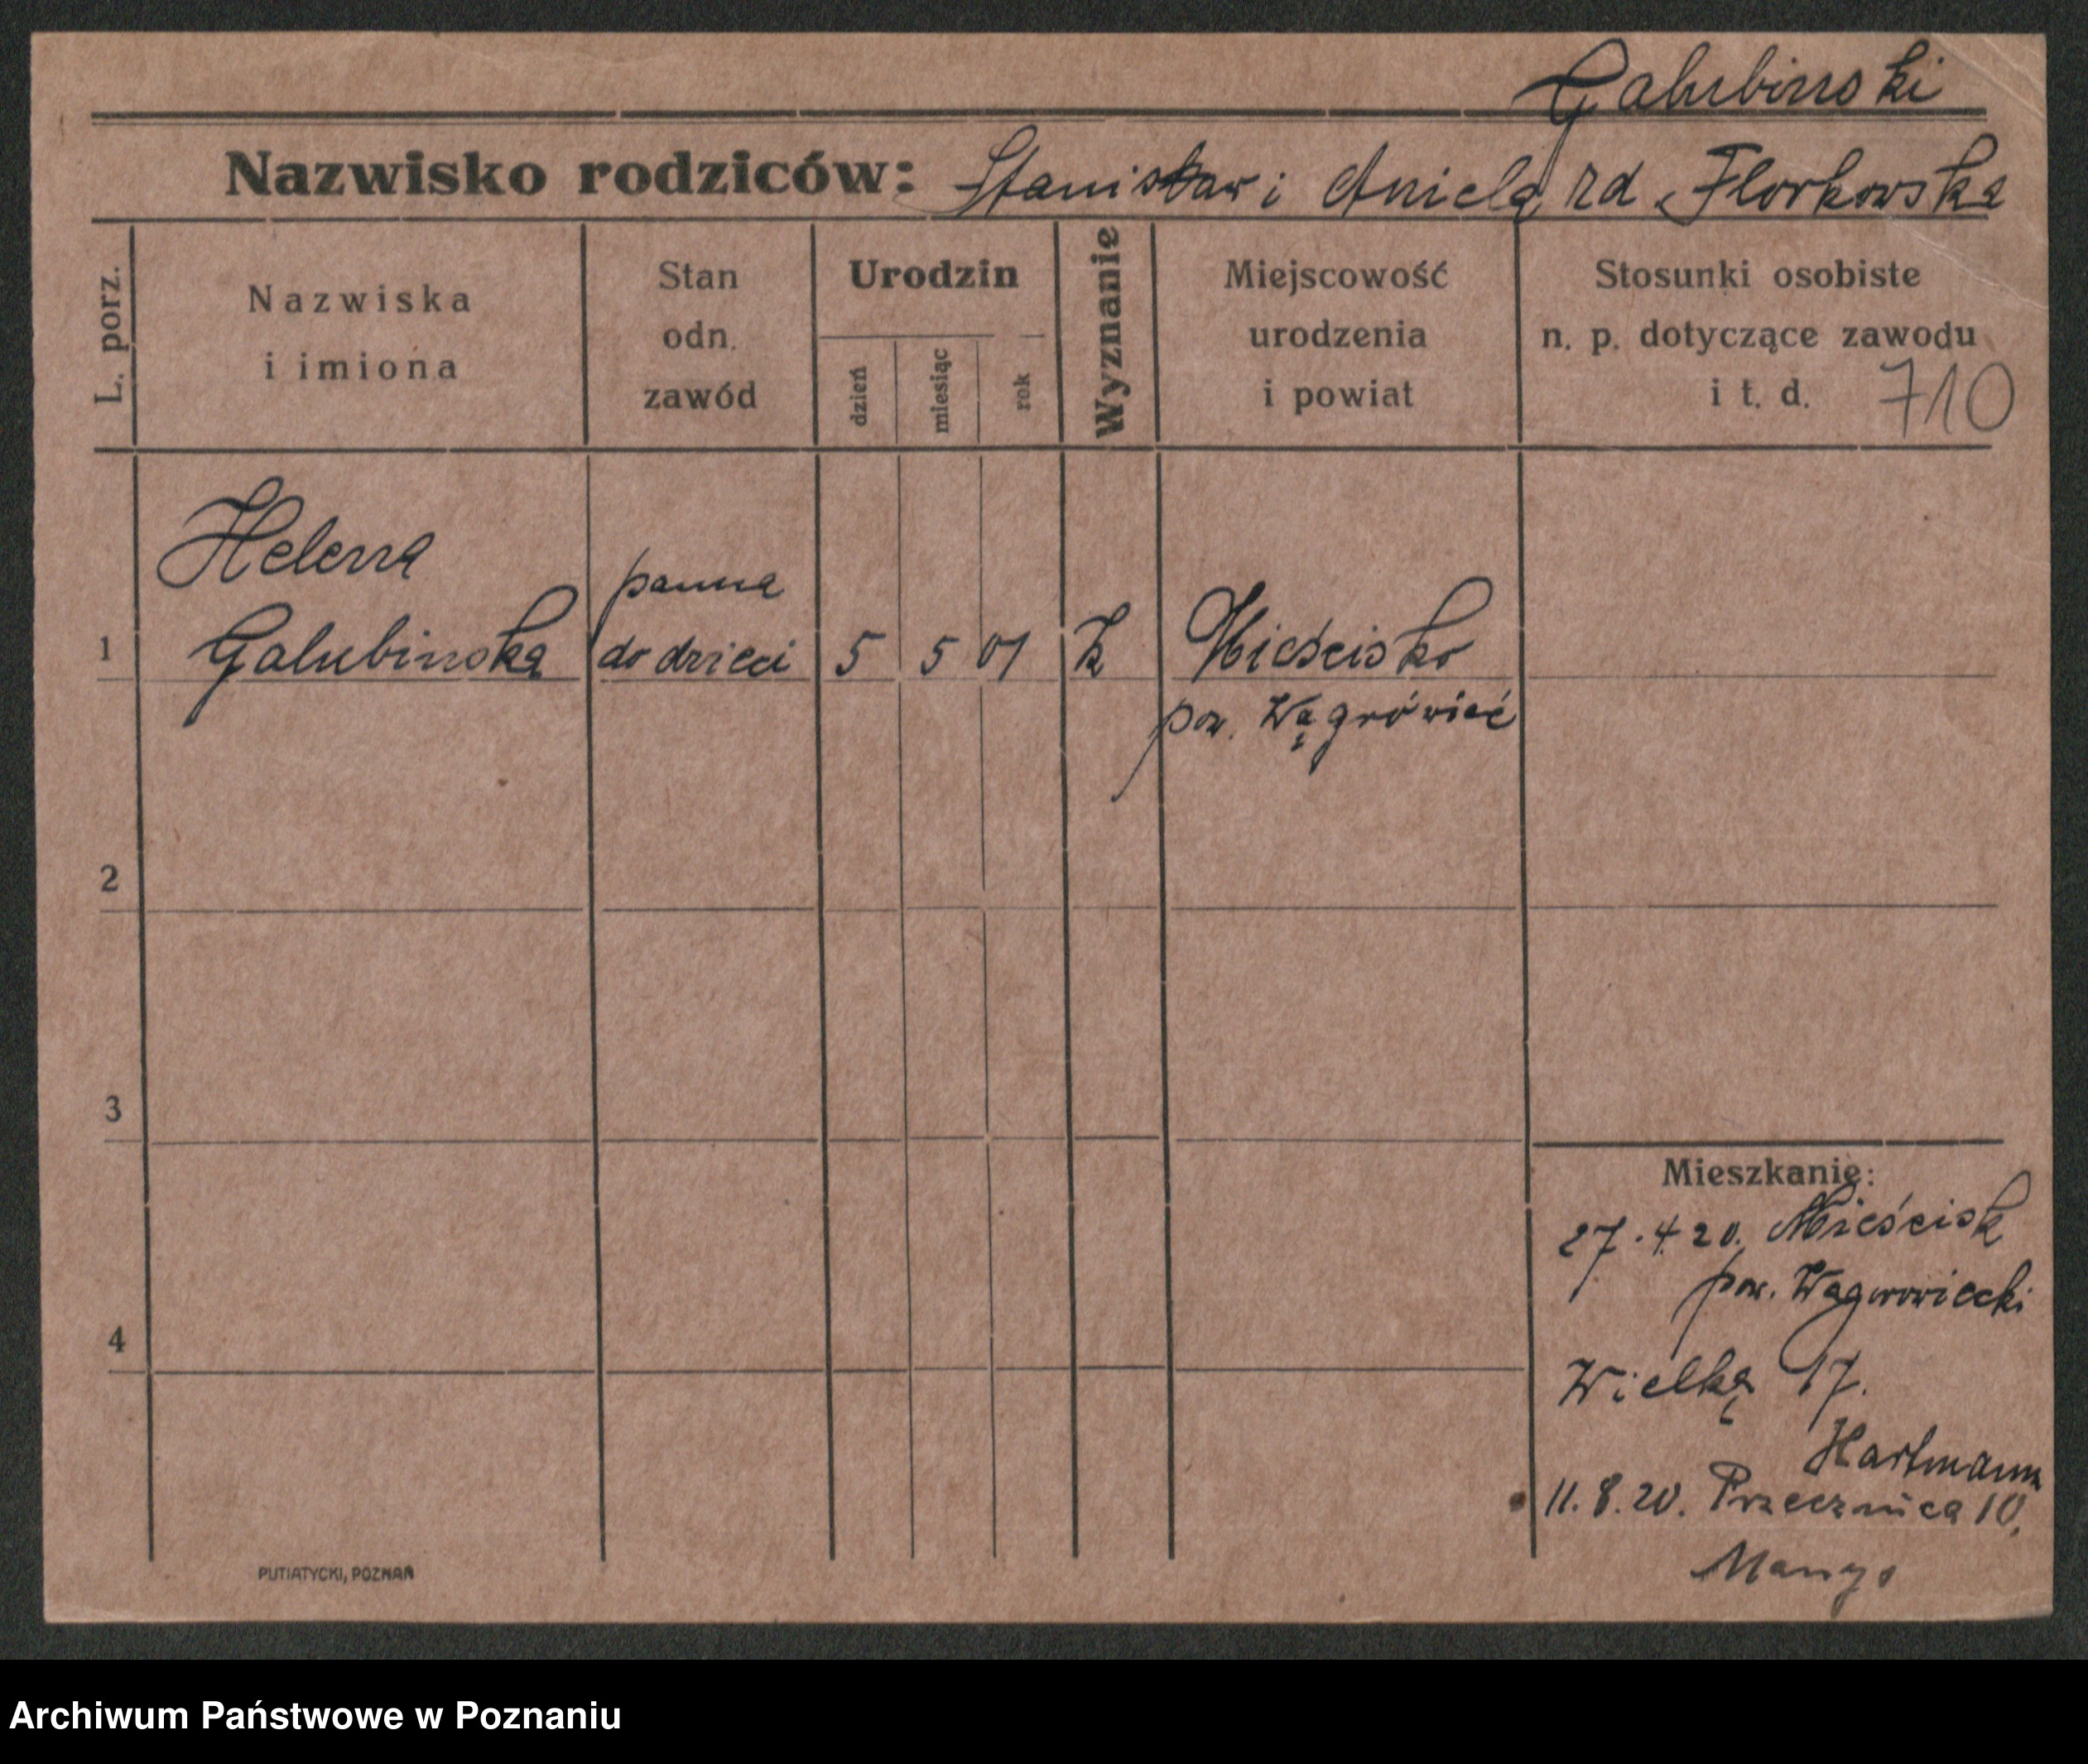 Galubinski
Nazwisko rodziców: Stanisław i Aniela rd. Florkowska
L. porz.
Nazwiska
i imiona
Stan
odn.
zawód
Urodzin
dzień
miesiąc
rok
Wyznanie
Miejscowość
urodzenia
i powiat
Stosunki osobiste
n. p. dotyczące zawodu
i t. d.
710
1
Helena
Galubinska
panna
do dzieci
5
5
01
k
Mieścisko
pow. Wągrówieć
2
3
4
Mieszkanie:
27.4.20. Mieścisk
pow. Wągrowiecki
Wielka 17.
Hartmann
11.8.20. Przecznica 10.
PUTIATYCKI, POZNAŃ
Archiwum Państwowe w Poznaniu